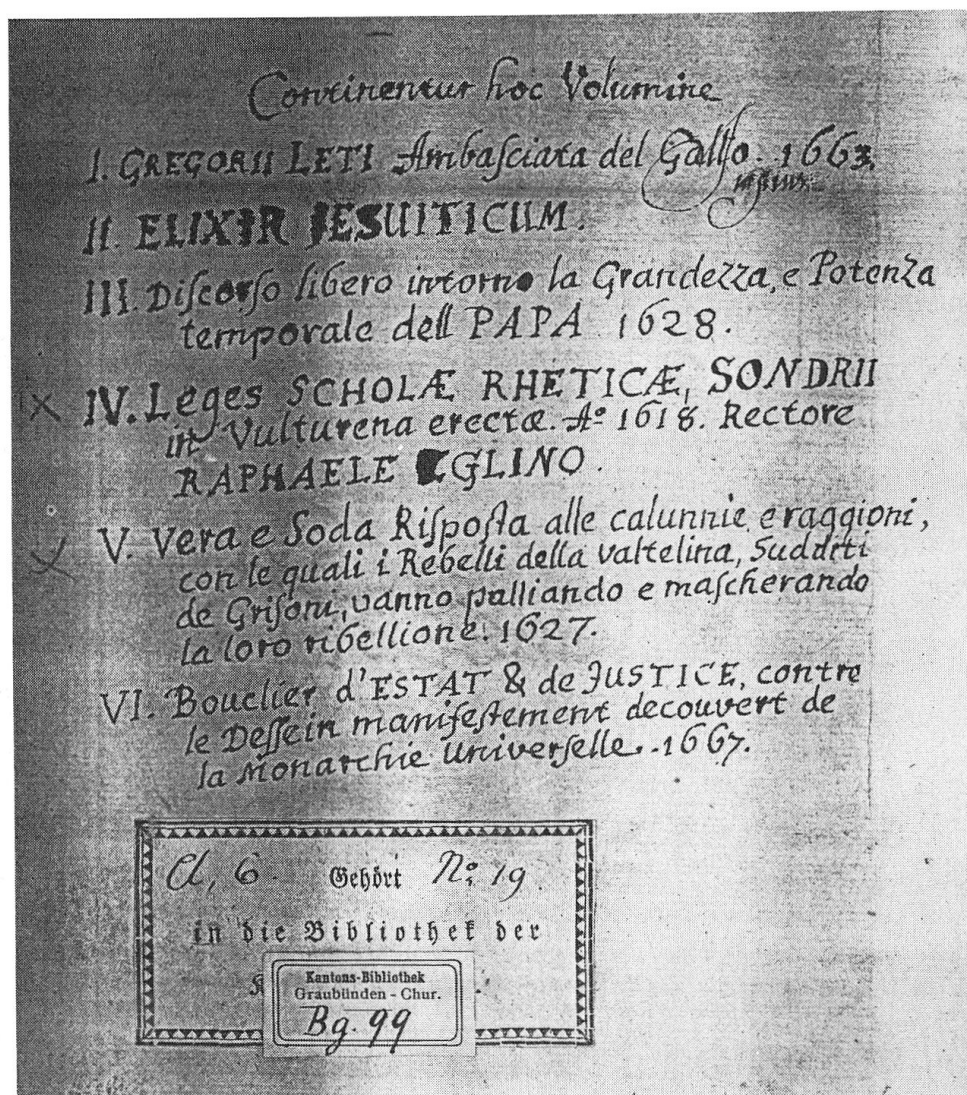 Continentur hoc Volumine
I. GREGORII LETI Ambaſciata del Gallo. 1663.
II. ELIXIR JESUITICUM.
III. Diſcorſo libero intorno la Grandezza, e Potenza
temporale dell PAPA 1628.
IV. Leges SCHOLÆ RHETICÆ, SONDRII
in Vulturena erectæ. Aº 1618. Rectore
RAPHAELE EGLINO.
V. Vera e Soda Riſpoſta alle calunnie e raggioni,
con le quali i Rebelli della valtelina, Sudditi
de Griſoni, vanno palliando e maſcherando
la loro ribellione. 1627.
VI. Bouclier d'ESTAT & de JUSTICE, contre
le Deſſein manifeſtement decouvert de
la Monarchie Univerſelle. 1667.
Cl, 6. Gehört Nº 19
in die Bibliothek der
Kantons-Bibliothek
Graubünden - Chur.
Bg. 99